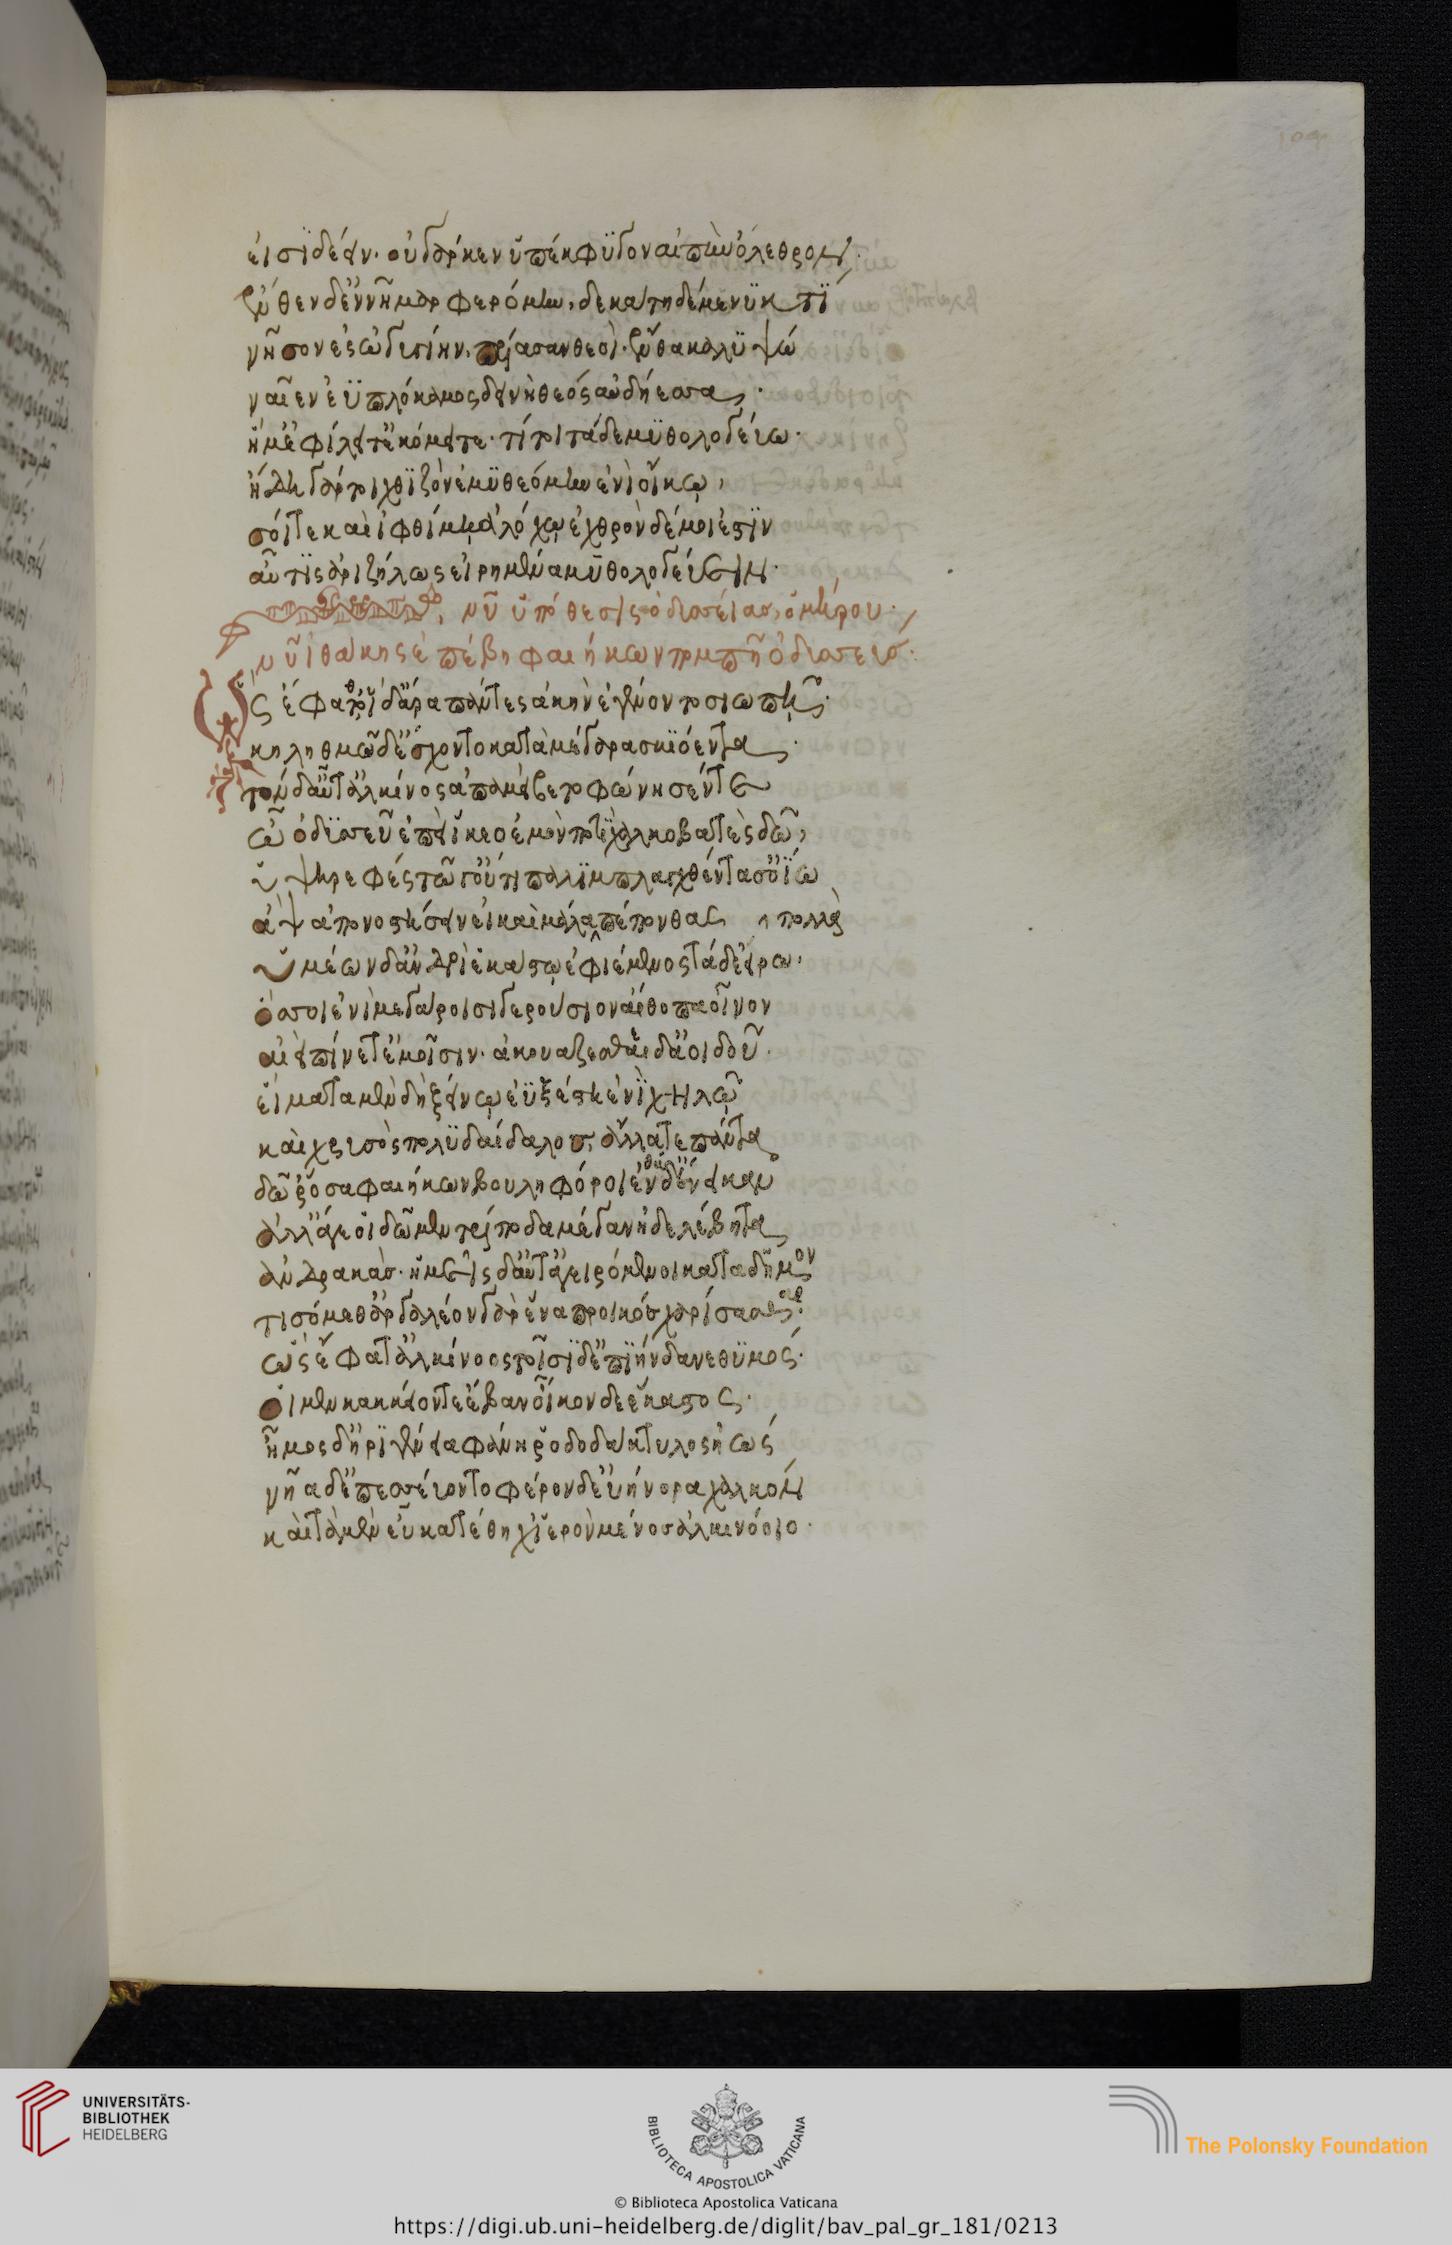 εἰσϊδέειν· οὐ γάρ κεν ὕπέκφϋγον αἰπὺν ὄλεθρον·
ἔνθεν δ' ἐννῆμαρ φερόμην, δεκάτη δέ με νϋκτϊ
νῆσον ἐς ὠγυγίην, πέλασαν θεοὶ· ἔνθα καλϋψώ
ναῖεν ἐϋπλόκαμος δεινὴ θεός αὐδήεσσα·
ἥ μ' ἐφίλει τ' ἐκόμει τε· τί τοι τάδε μϋθολογείω·
ἤδη γάρ τοι χθϊζὸν ἐμϋθεόμην ἐνὶ οἴκω,
σοί τε καὶ ἰφθίμη ἀλόχω ἐχθρὸν δέ μοι ἐστϊν
αὖτϊς ἀριζήλως εἰρημένα μυθολογεύειν·
νῦ ὑπόθεσις ὀδυσσείας, ὁμήρου·
νῦ ἰθάκης ἐπέβη φαιήκων πομπῆ ὀδυσσεύς·
Ὣς ἔφαθ' οἱ δ' ἄρα πάντες ἀκὴν ἐγένοντο σιωπῆ·
κηληθμῶ δ' ἔσχοντο κατὰ μέγαρα σκϊόεντα·
τὸν δ' αὖτ' ἀλκίνοος ἀπαμείβετο φώνησέν τε
ὦ ὀδϋσεῦ ἐπεὶ ἵκεο ἐμὸν ποτὶ χαλκοβατὲς δῶ,
ὑψηρεφές τῶ σ' οὔτι παλϊμπλαγχθέντα γ' ὀΐω
ἂψ ἀπονοστήσειν εἰ καὶ μάλα πέπονθας πολλὰ
ὑμέων δ' ἀνδρὶ ἑκάστω ἐφιέμενος τάδε εἴρω,
ὅσσοι ἐνὶ μεγάροισι γερούσιον αἴθοπα οἶνον
αἰεὶ πίνετ' ἐμοῖσιν· ἀκουάζεσθε δ' ἀοιδοῦ·
εἵματα μὲν δὴ ξείνω ἐϋξέστη ἐνὶ χηλῶ
κεῖται χρυσὸς πολϋδαίδαλος, ἄλλα τε πάντα
δῶρ' ὅσα φαιήκων βουληφόροι ἐνθάδ' ἔνεικαν
ἀλλ' ἄγε οἱ δῶμεν τρίποδα μέγαν ἠδὲ λέβητα
ἀνδρακάς· ἡμεῖς δ' αὖτ' ἀγειρόμενοι κατὰ δῆμον
τισόμεθ' ἀργαλέον γὰρ ἕνα προικὸς χαρίσασθαι·
ὣς ἔφατ' ἀλκίνοος τοῖσϊ δ' ἐπϊήνδανε θϋμός·
οἱ μὲν κακκείοντες ἔβαν οἶκον δὲ ἕκαστος·
ἦμος δ' ἠρϊγένεια φάνη ῥοδοδάκτυλος ἠώς
νῆα δ' ἐπεσσεύοντο φέρον δ' εὐήνορα χαλκόν
καὶ τὰ μὲν εὖ κατέθηχ' ἱερὸν μένος ἀλκινόοιο·
UNIVERSITÄTS-
BIBLIOTHEK
HEIDELBERG
BIBLIOTECA APOSTOLICA VATICANA
The Polonsky Foundation
© Biblioteca Apostolica Vaticana
https://digi.ub.uni-heidelberg.de/diglit/bav_pal_gr_181/0213